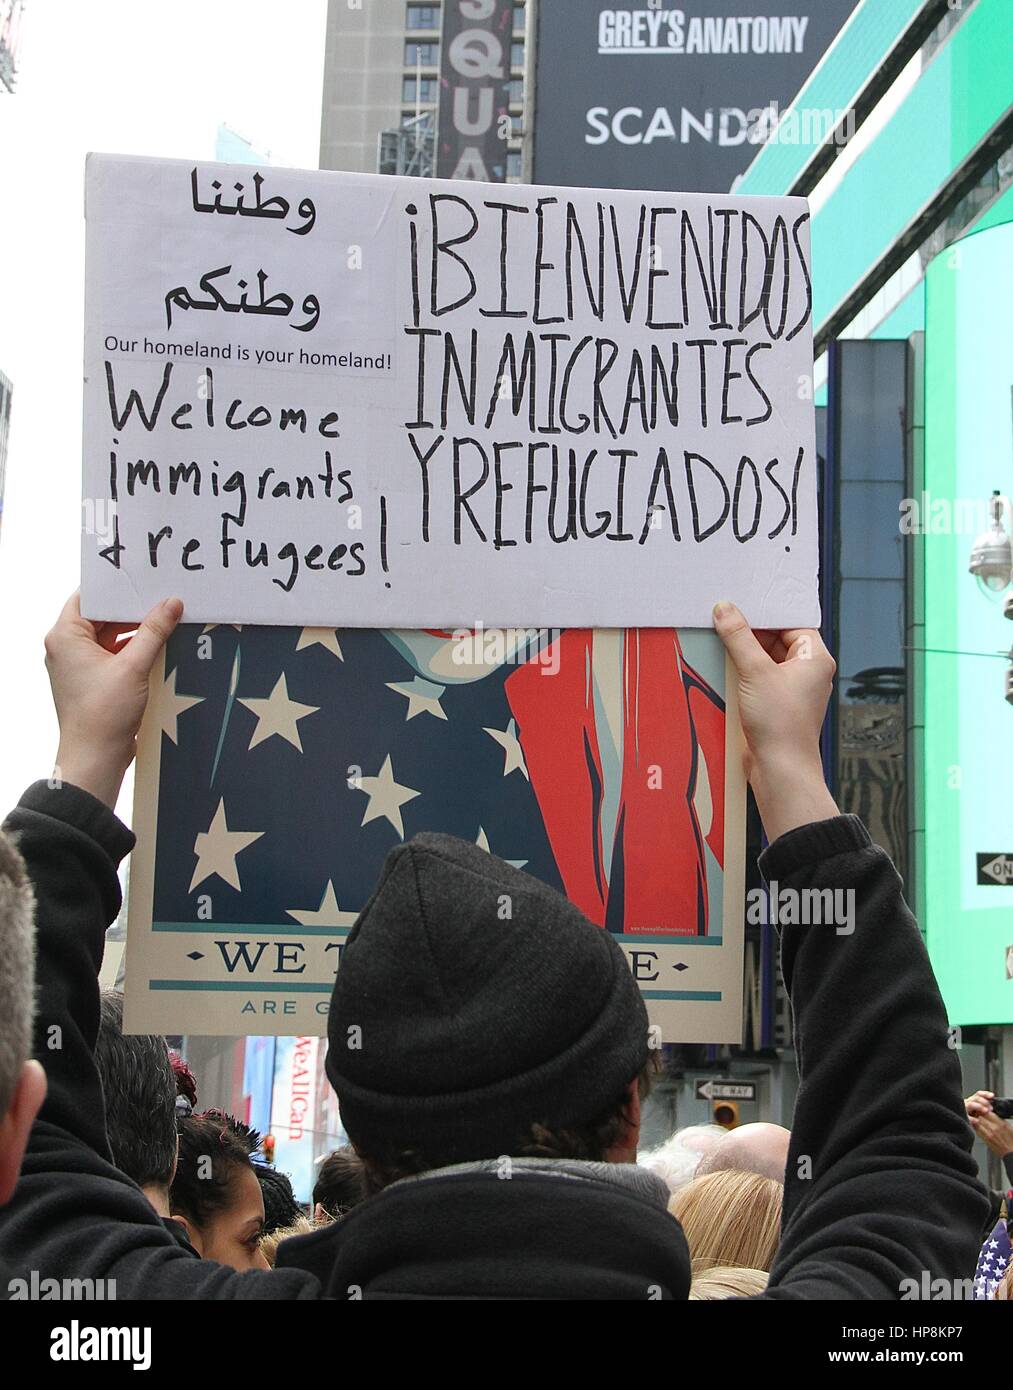 GREY'S ANATOMY
SCANDA
SQUA
وطننا
وطنكم
Our homeland is your homeland!
Welcome
immigrants
& refugees!
¡BIENVENIDOS
INMIGRANTES
Y REFUGIADOS!
WE T
E
ARE G
WeAllCan
ONE WAY
ON
alamy stock photo
HP8KP7
www.alamy.com